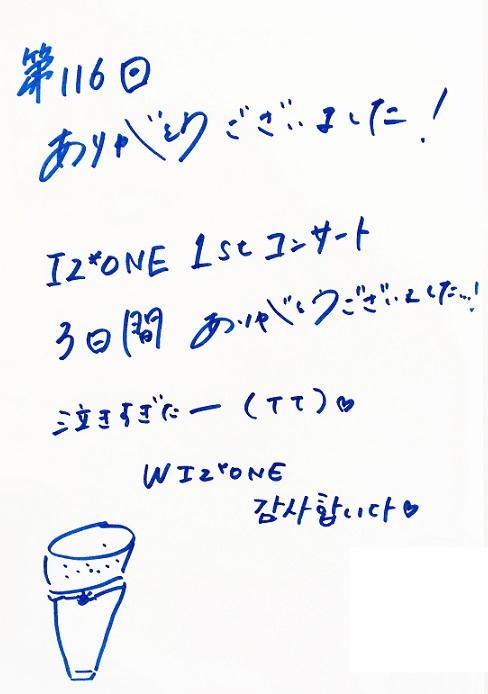 第116回
ありがとうございました!
IZ*ONE 1stコンサート
3日間 ありがとうございました...!
泣きすぎたー(TT)♥
WIZ*ONE
감사합니다♥